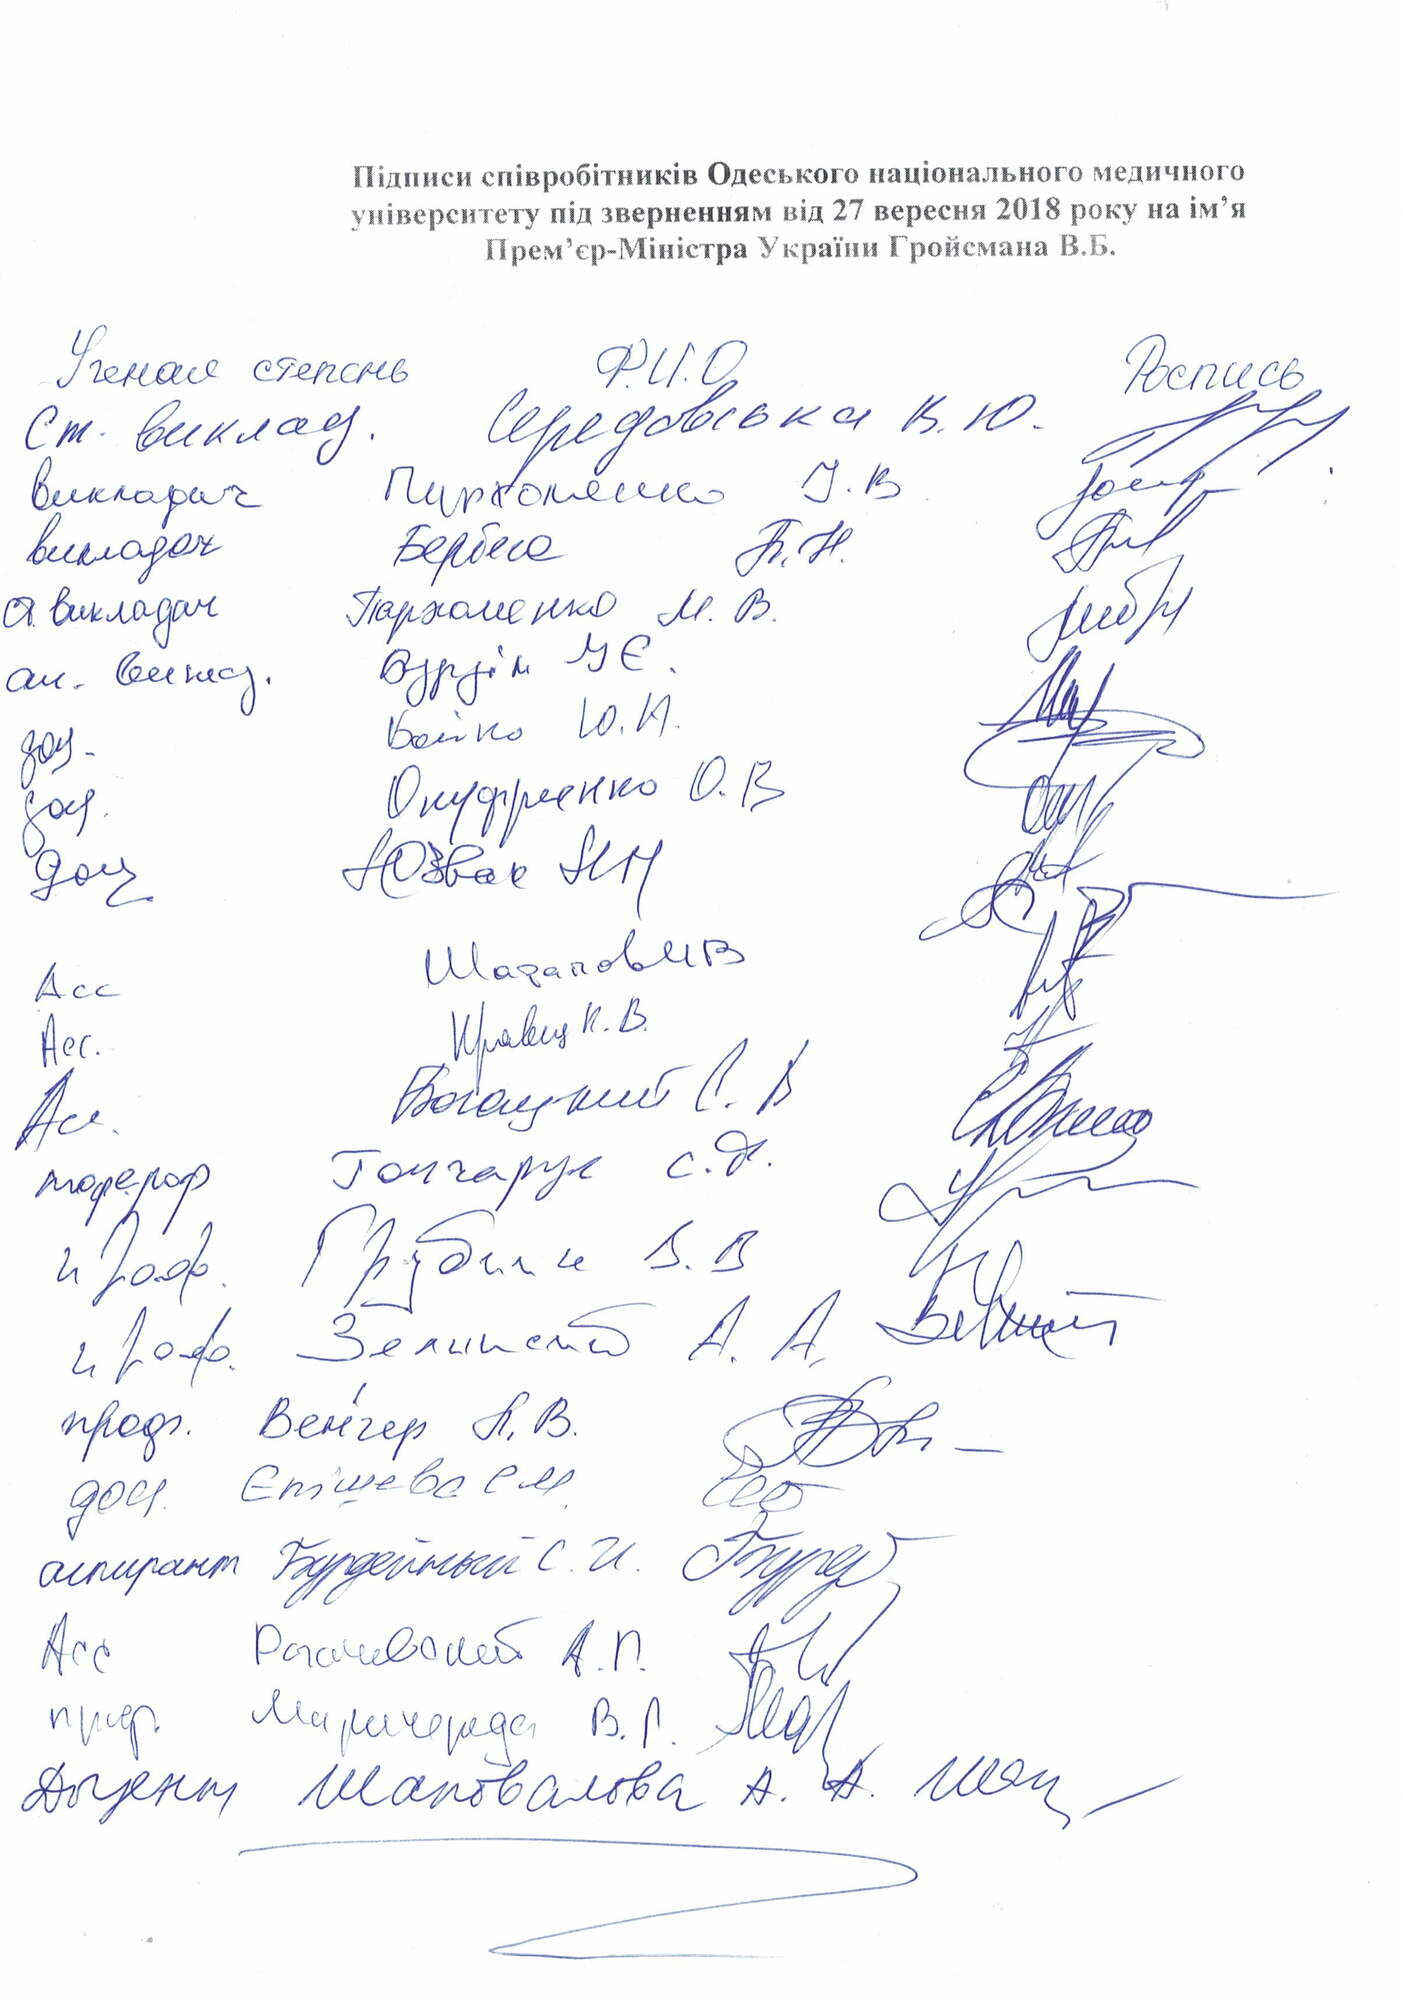 Підписи співробітників Одеського національного медичного
університету під зверненням від 27 вересня 2018 року на ім’я
Прем’єр-Міністра України Гройсмана В.Б.
Ученая степень Ф.И.О Роспись
Ст. виклад. Середовська В.Ю.
викладач І.В
викладач П.Н.
ст. викладач Пархоменко М.В.
Є.
доц. Бойко Ю.А.
доц. Онуфрієнко О.В
доц Юзвак
Асс Шаталов
Асс. Кравец К.В.
Асс. Богацкий С.В
професор Гончарук С.
проф. Грубник В.В
проф. Зелинский А.А.
проф. Венгер Л.В.
доц. Єпішева С М.
аспирант Бурдейный С.И.
Асс Рогачевский А.П.
проф. Маричереда В.Г.
Доцент Шаповалова А.А.